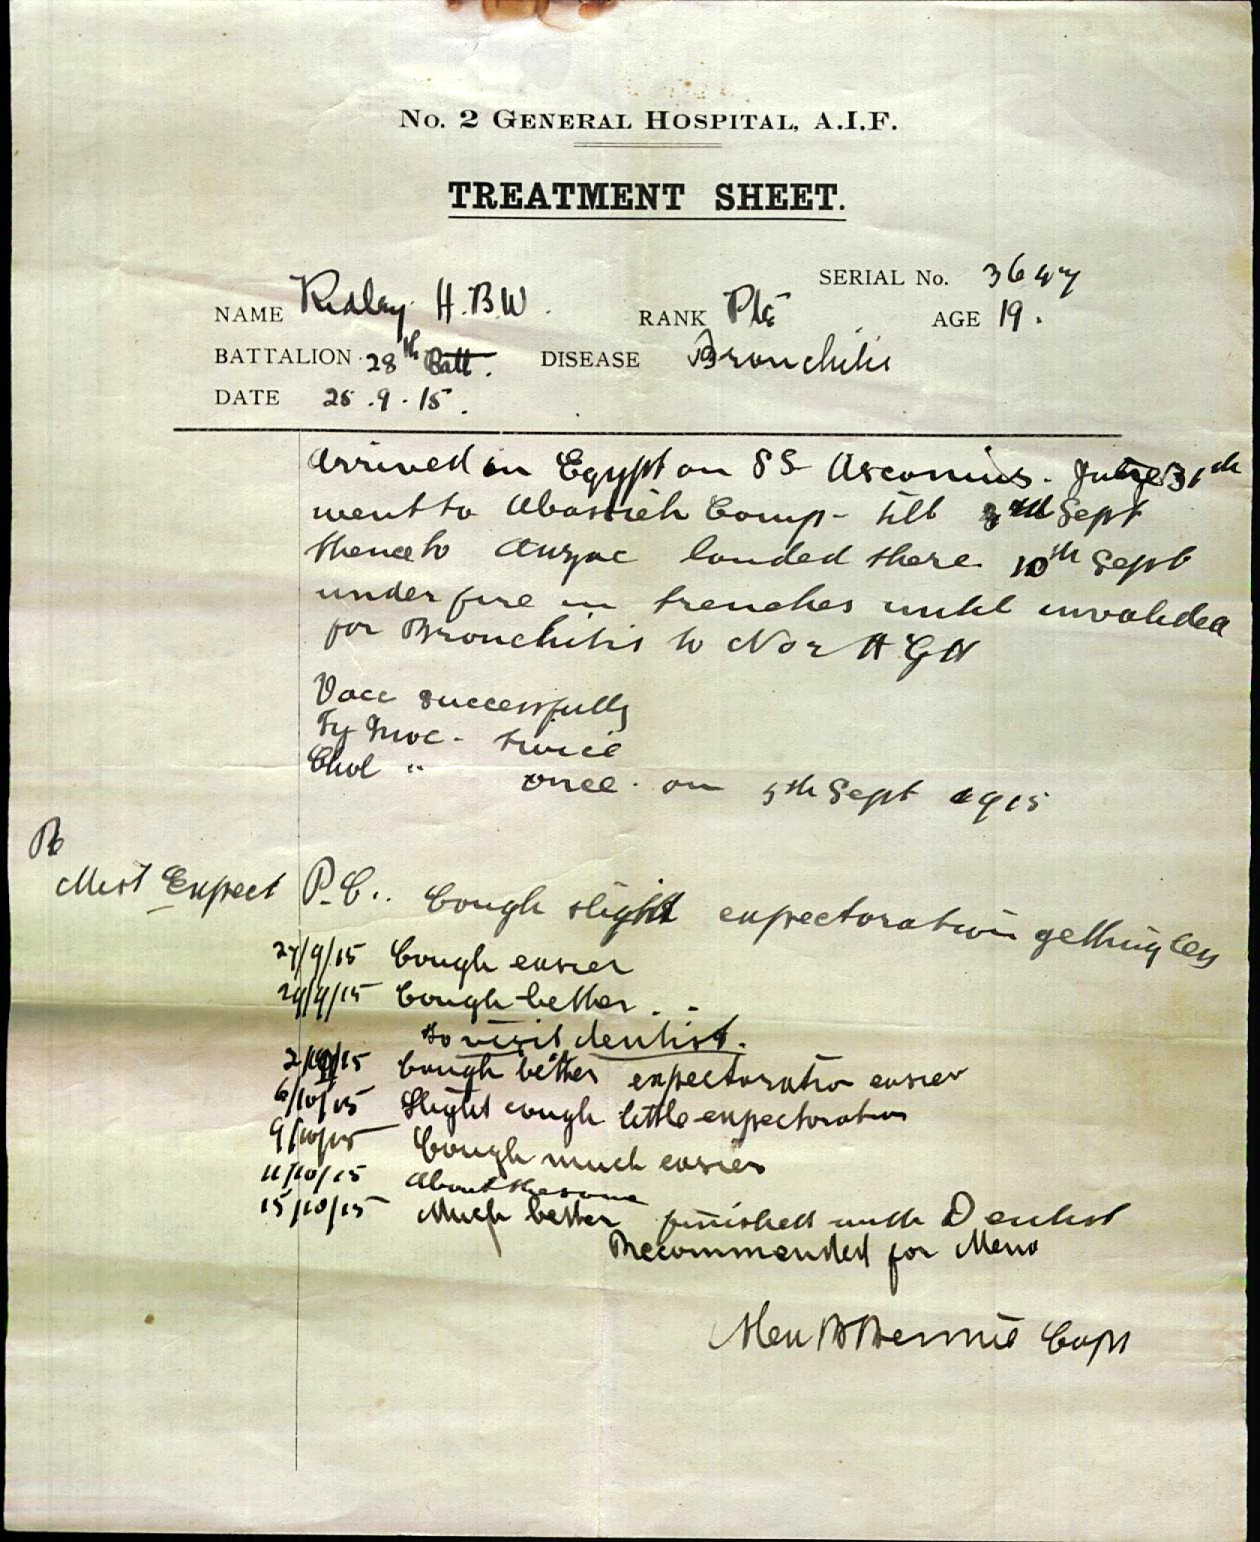 No. 2 General Hospital, A.I.F.
TREATMENT SHEET.
SERIAL No. 3647
NAME Ridley H.B.W. RANK Pte AGE 19.
BATTALION 28th Batt. DISEASE Bronchitis
DATE 25.9.15.
Arrived in Egypt on SS Ascanius. 31st
went to Abassieh Camp - till Sept
thence to Anzac landed there 10th Sept
under fire in trenches until invalided
for Bronchitis to No 2 A G H
Vacc successfully
Ty Inoc - twice
Chol " once - on 5th Sept 1915
Rx
Mist Expect P.C. Cough slight expectoration getting less
27/9/15 Cough easier
29/9/15 Cough better
to visit dentist.
2/10/15 Cough better expectoration easier
6/10/15 Slight cough little expectoration
9/10/15 Cough much easier
11/10/15 About the same
15/10/15 Much better finished with Dentist
Recommended for Mena
Capt